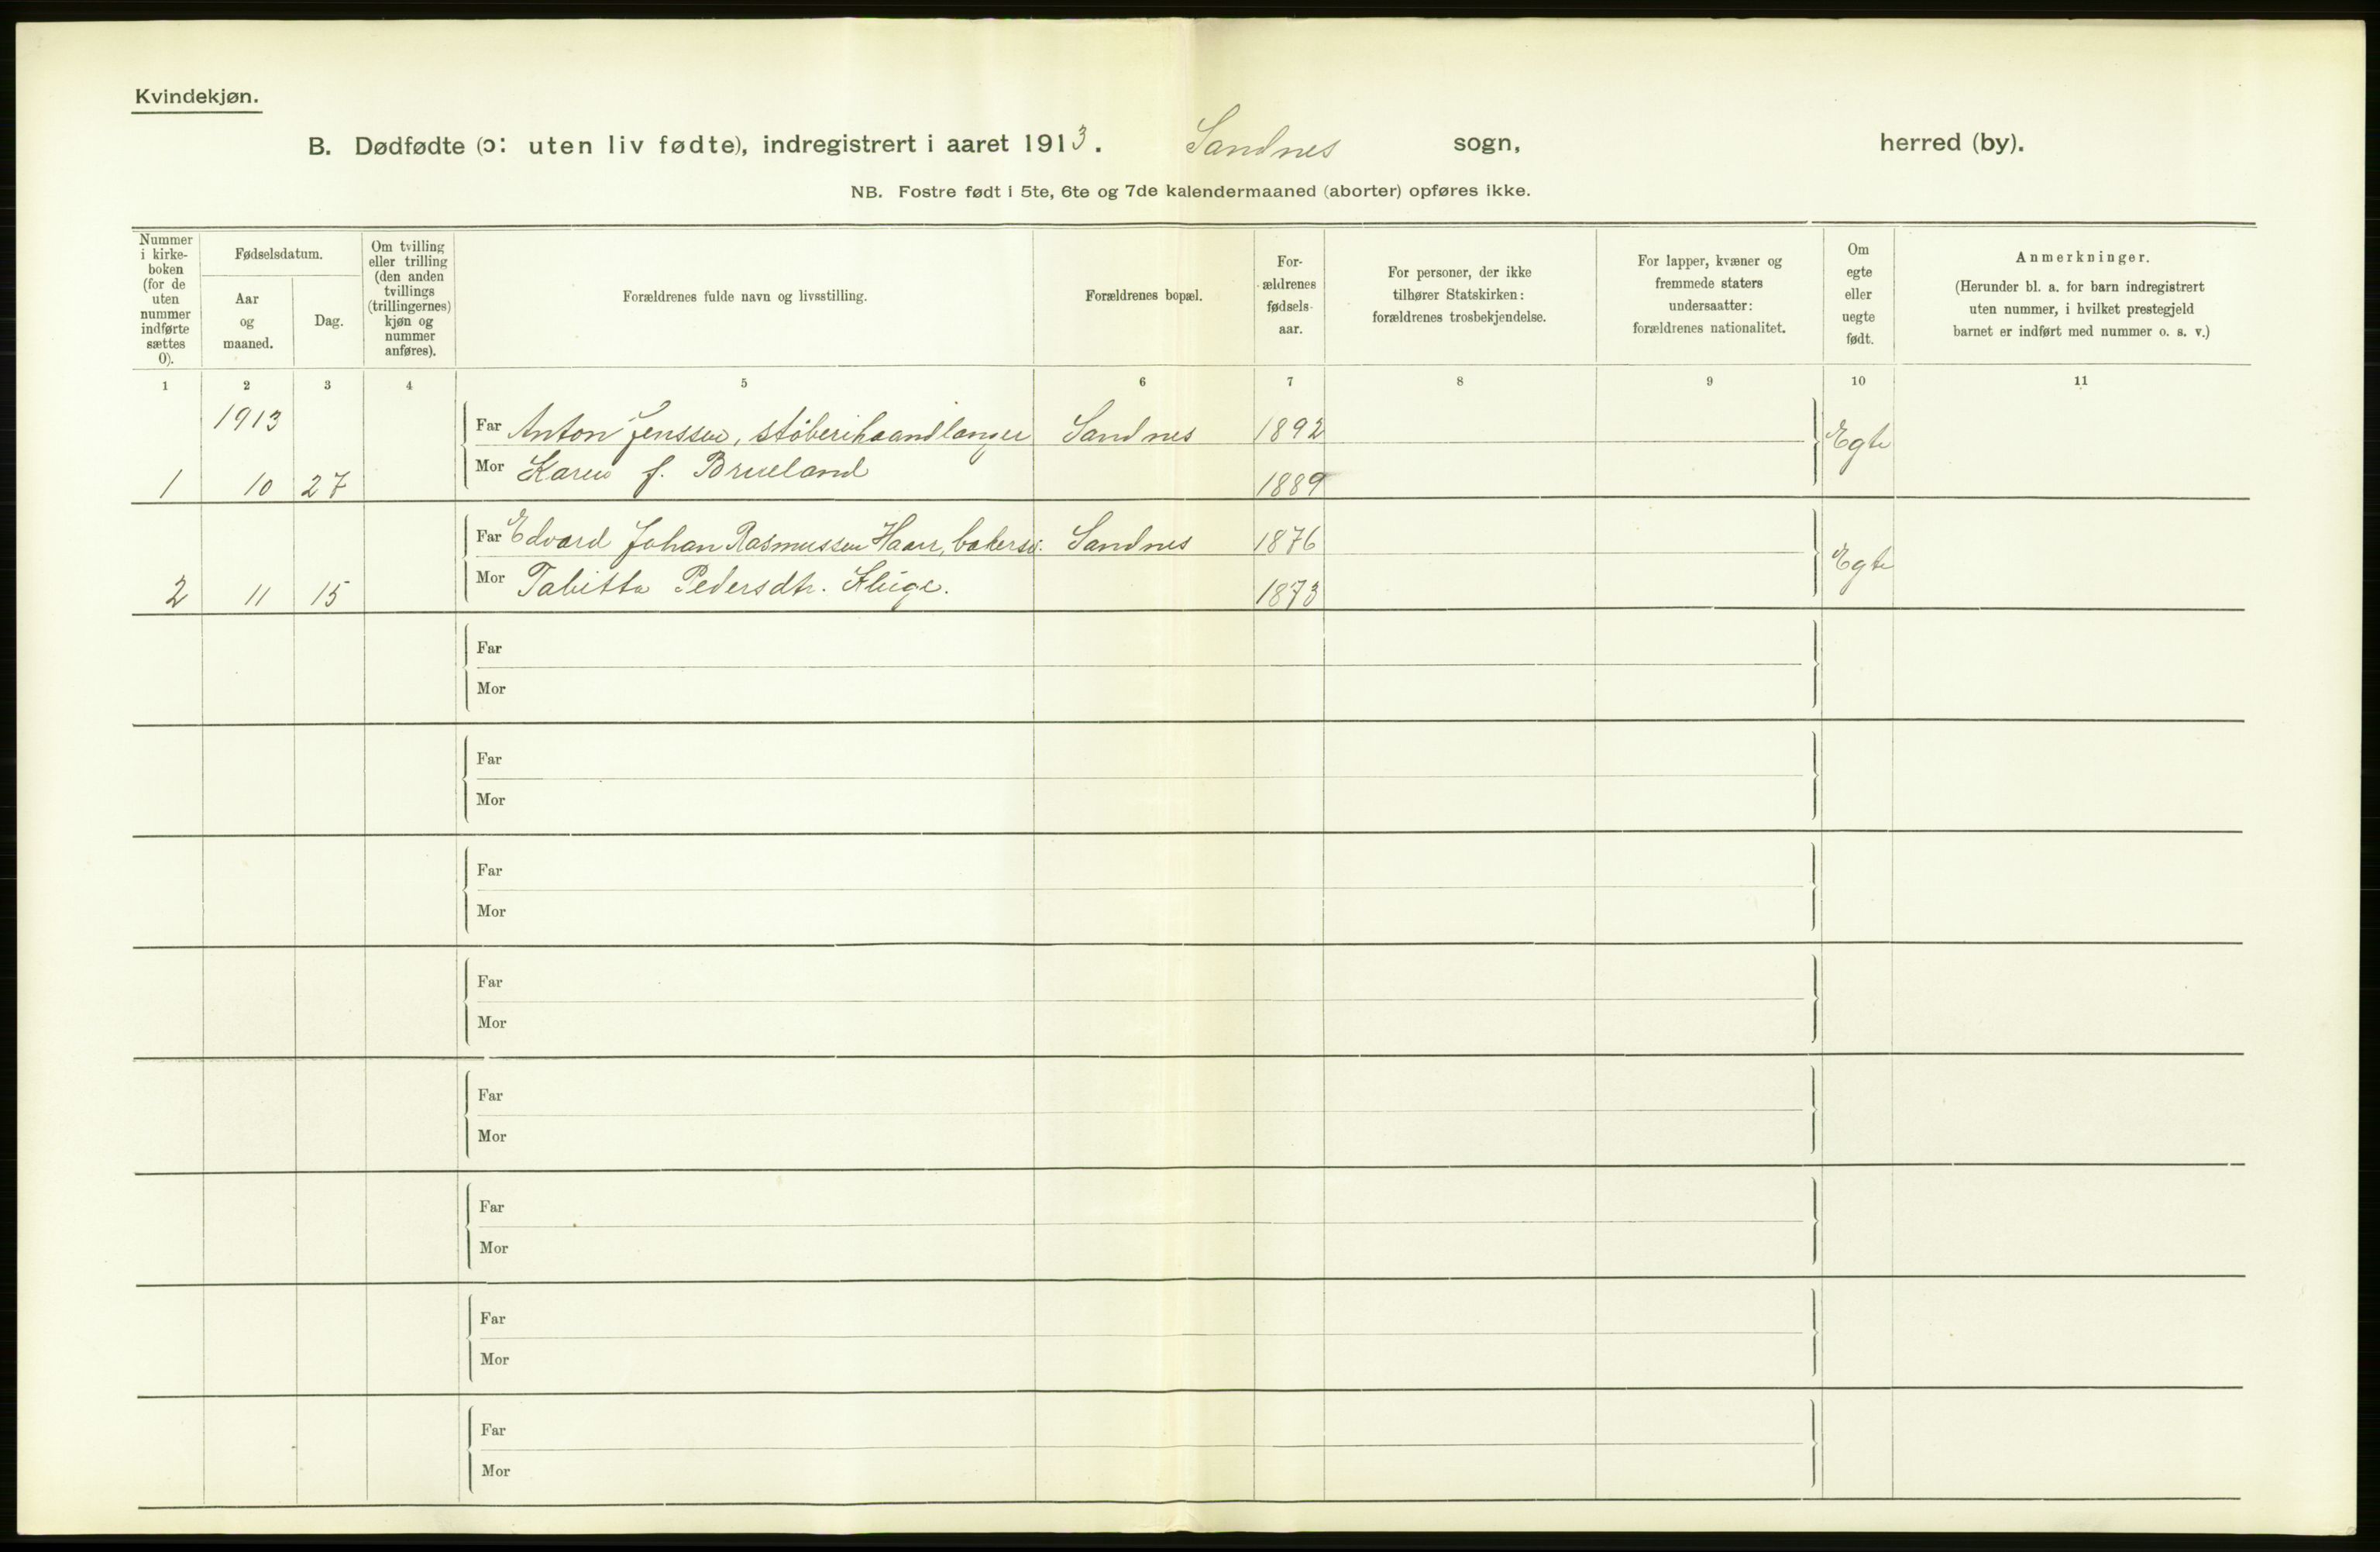 Kvindekjøn.
B. Dødfødte (ɔ: uten liv fødte), indregistrert i aaret 1913. Sandnes sogn, herred (by).
NB. Fostre født i 5te, 6te og 7de kalendermaaned (aborter) opføres ikke.
Nummer
i kirke-
boken
(for de
uten
nummer
indførte
sættes
0).
Fødselsdatum.
Aar
og
maaned.
Dag.
Om tvilling
eller trilling
(den anden
tvillings
(trillingernes)
kjøn og
nummer
anføres).
Forældrenes fulde navn og livsstilling.
Forældrenes bopæl.
For-
ældrenes
fødsels-
aar.
For personer, der ikke
tilhører Statskirken:
forældrenes trosbekjendelse.
For lapper, kvæner og
fremmede staters
undersaatter:
forældrenes nationalitet.
Om
egte
eller
uegte
født.
Anmerkninger.
(Herunder bl. a. for barn indregistrert
uten nummer, i hvilket prestegjeld
barnet er indført med nummer o. s. v.)
1 2 3 4 5 6 7 8 9 10 11
1913
Far Anton Jenssen, støberihaandlanger Sandnes 1892 Egte
1 10 27 Mor Karen f. Brueland 1889
Far Edvard Johan Rasmussen Haar, bakersv. Sandnes 1876 Egte
2 11 15 Mor Tabitta Pedersdtr. Kluge. 1873
Far
Mor
Far
Mor
Far
Mor
Far
Mor
Far
Mor
Far
Mor
Far
Mor
Far
Mor